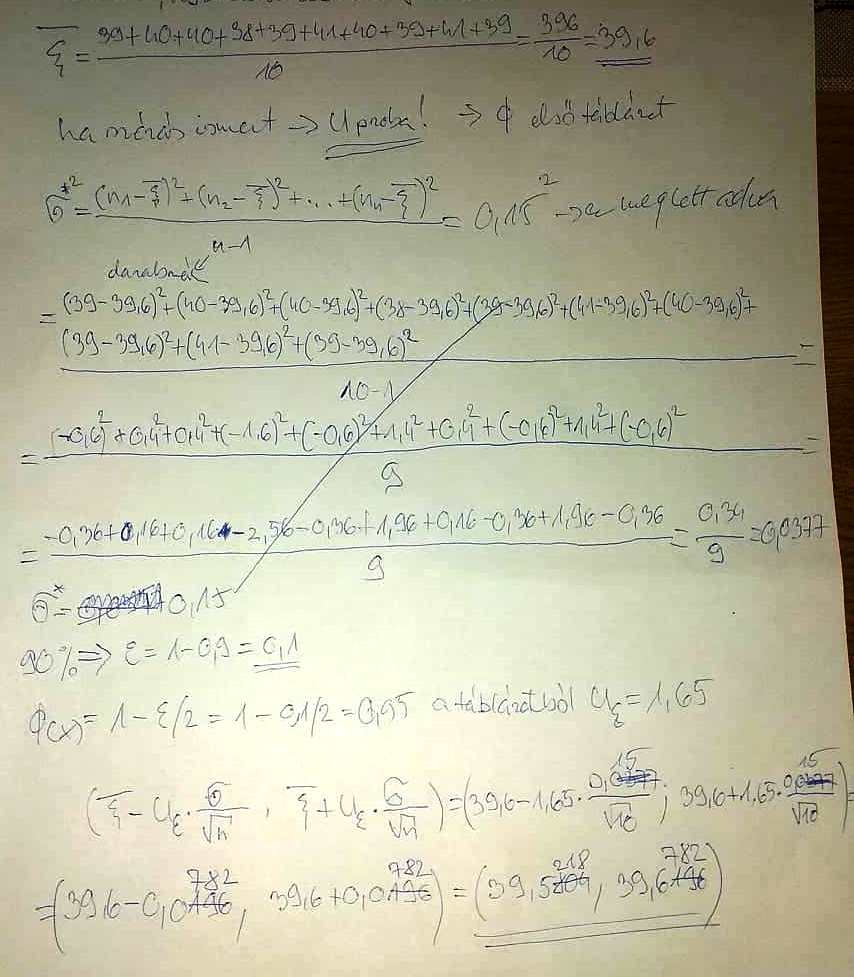 ξ̄ = (39+40+40+38+39+41+40+39+41+39)/10 = 396/10 = 39,6
ha szórás ismert → U próba! → φ első táblázat
σ*² = ((n1-ξ̄)²+(n2-ξ̄)²+...+(nn-ξ̄)²)/(n-1) = 0,15² → ez meg lett adva
darabszám
= (39-39,6)²+(40-39,6)²+(40-39,6)²+(38-39,6)²+(39-39,6)²+(41-39,6)²+(40-39,6)²+
(39-39,6)²+(41-39,6)²+(39-39,6)² =
10-1
= ((-0,6)²+0,4²+0,4²+(-1,6)²+(-0,6)²+1,4²+0,4²+(-0,6)²+1,4²+(-0,6)²)/9 =
= (-0,36+0,16+0,16-2,56-0,36+1,96+0,16-0,36+1,96-0,36)/9 = 0,34/9 = 0,0377
σ* = 0,15
90% ⇒ ε = 1-0,9 = 0,1
φ(x) = 1-ε/2 = 1-0,1/2 = 0,95 a táblázatból Uε = 1,65
(ξ̄ - Uε · σ/√n, ξ̄ + Uε · σ/√n) = (39,6-1,65 · 0,15/√10; 39,6+1,65 · 0,15/√10) =
= (39,6-0,0782, 39,6+0,0782) = (39,5218, 39,6782)